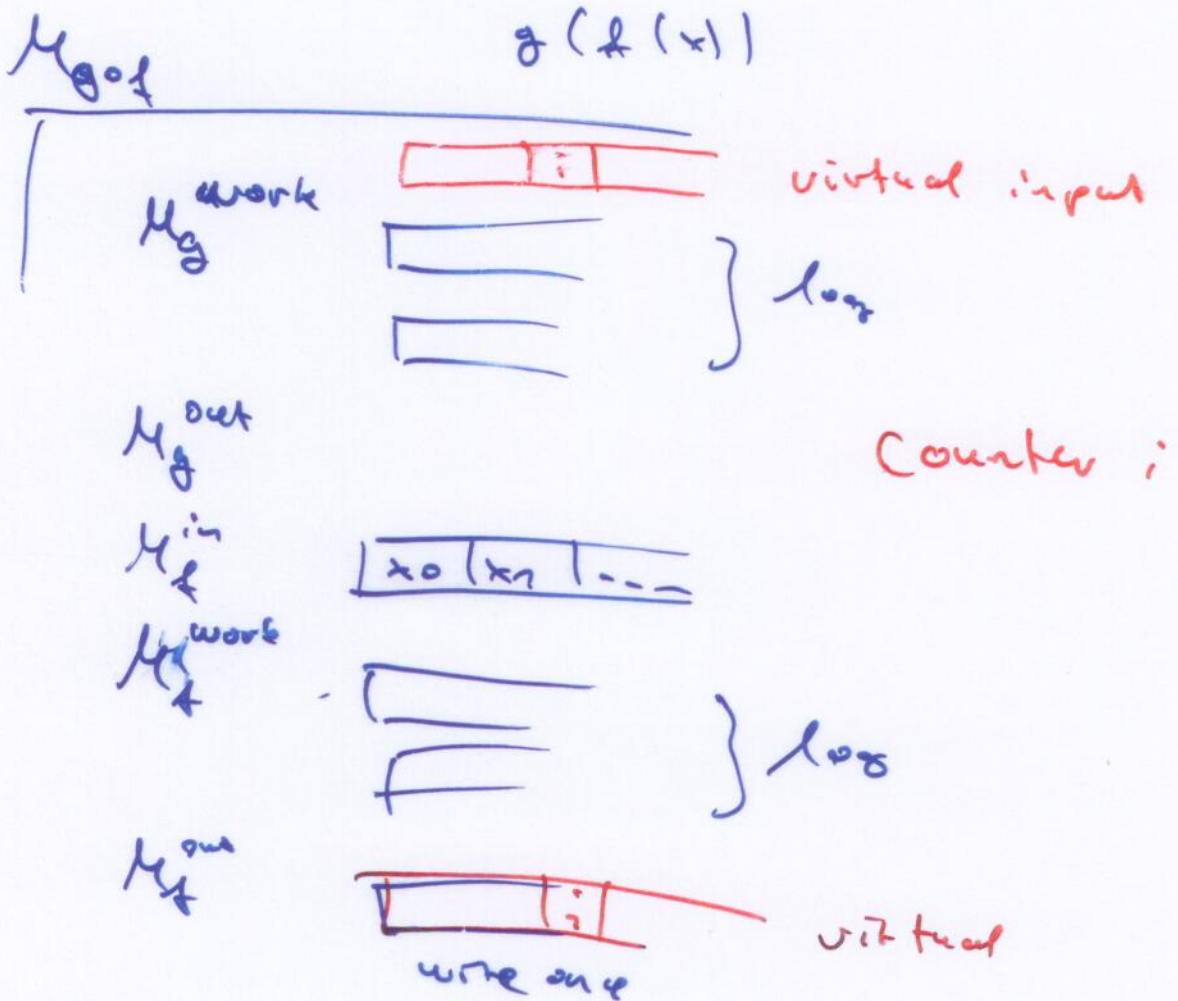 M_{g∘f} g(f(x))
i virtual input
M_g^{work}
} log
M_g^{out}
Counter i
M_f^{in} x0 | x1 | ---
M_f^{work}
} log
M_f^{out} i virtual
write once